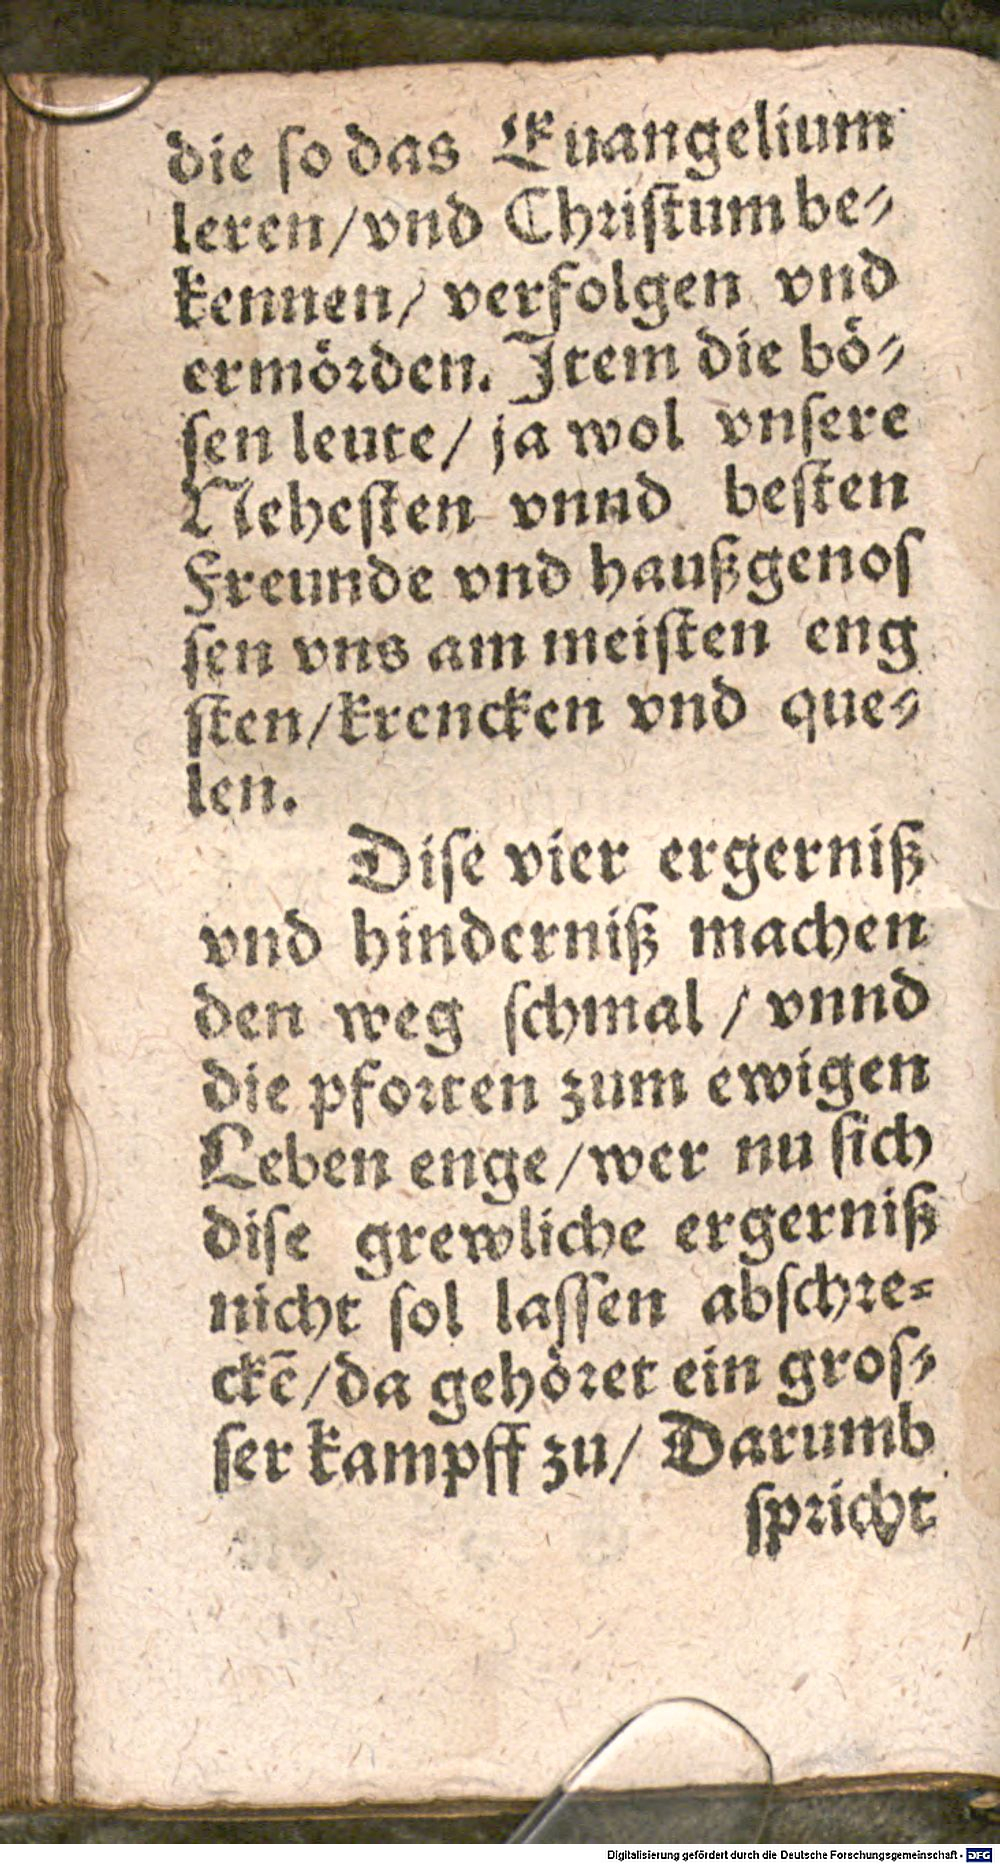 die so das Euangelium
leren/vnd Christum be-
kennen/ verfolgen vnd
ermörden. Item die bö-
sen leute/ ja wol vnsere
Nehesten vnnd besten
Freunde vnd haußgenos
sen vns am meisten eng
sten/krencken vnd que-
len.
Dise vier ergerniß
vnd hinderniß machen
den weg schmal / vnnd
die pforten zum ewigen
Leben enge/wer nu sich
dise grewliche ergerniß
nicht sol lassen abschre-
ckē/da gehöret ein gros-
ser kampff zu/ Darumb
spricht
Digitalisierung gefördert durch die Deutsche Forschungsgemeinschaft - DFG